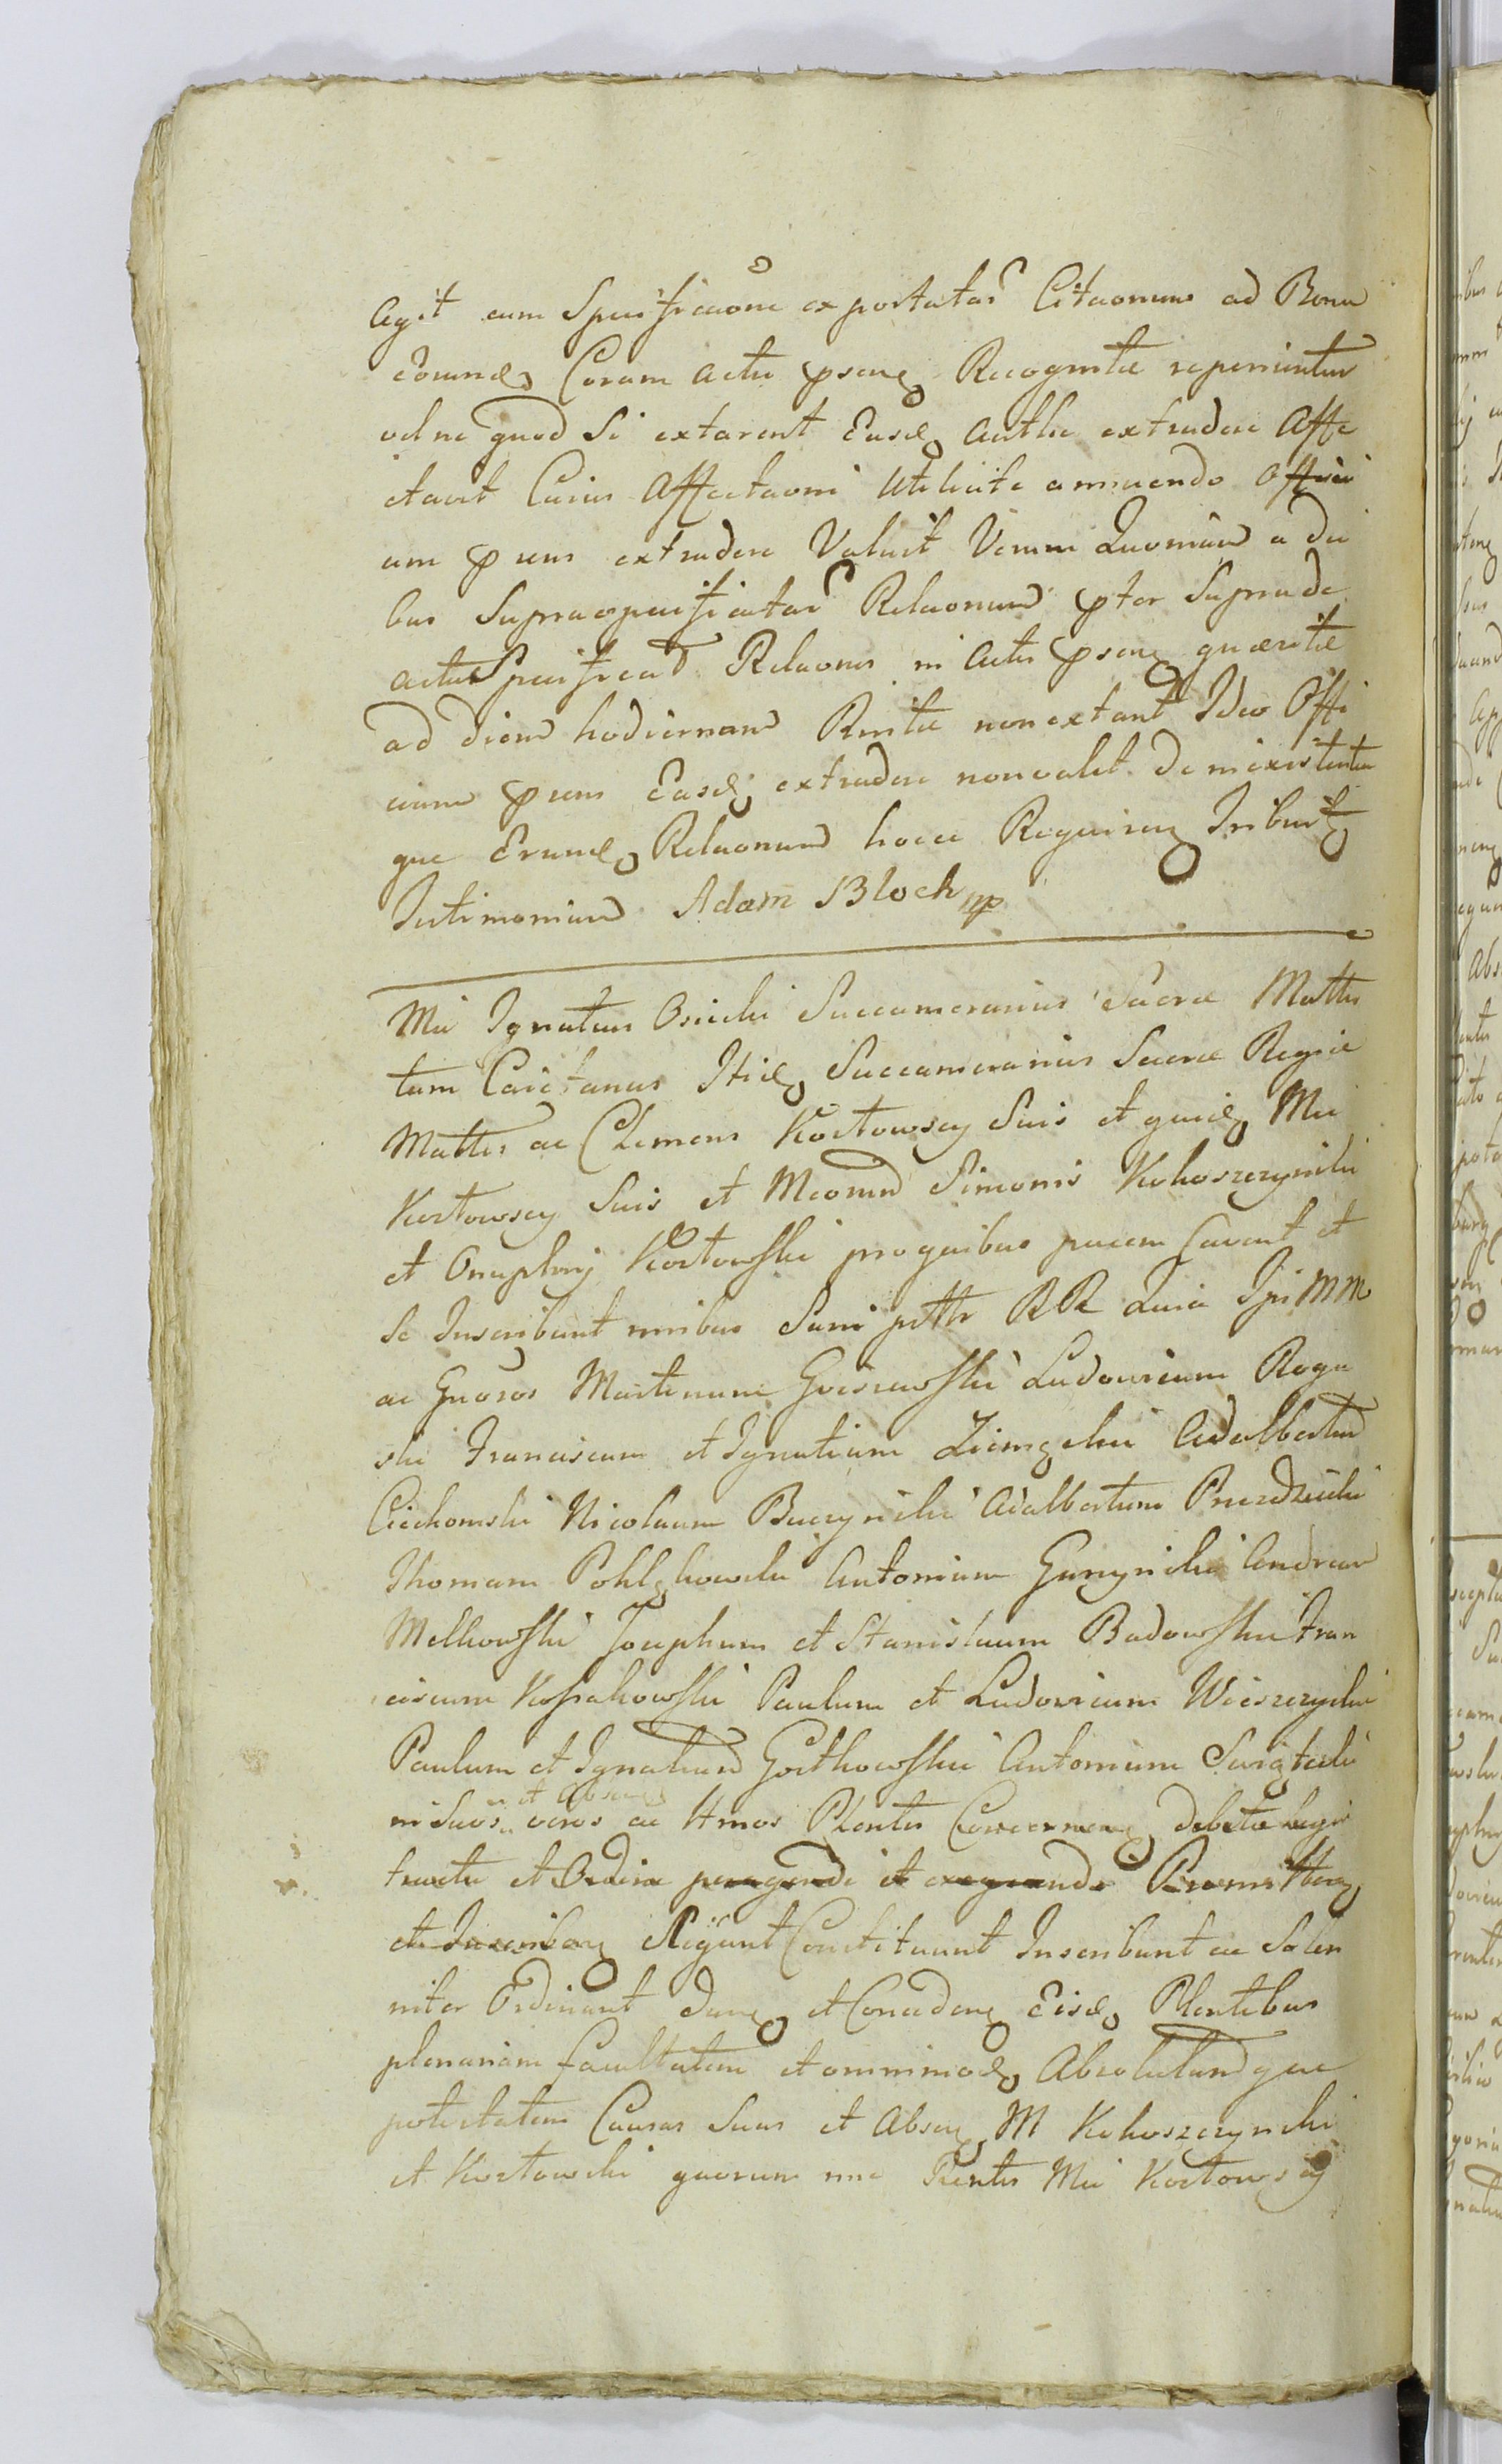 Agit cum Specificaone exportatar Citaonum ad Bona
Eorund Coram actu psens Recognitæ reperiuntur
vel ne quod Si extarent Easd Authe extradere Affe
ctavit Cuius Affectaoni annuendo Offici
um psens extradere Valuit Verum Quoniam a
bus Supraspecificatar Relaonum pter Suprade
actus Specificat Relaones in Actis psens quæsitæ
ad diem hodiernam non extant Ideo Offi
cium psens Easd extradere non valet De inexistentia
que Erund Relaonum hocce Requirens Tribuit
Testimonium Adam Bloch mp
Mci Ignatius Osiecki Succamerarius Sacræ Mattis
tum Caietanus Itid Succamerarius Sacræ Regiæ
Mattis ac Clemens Kortowscy Suis et quid Mci
Kortowscy Suis et Mcorum Simonis Kokoszczynski
et Onuphrij Kortowski pro quibus pacem Cavent et
Se Inscribunt nnibus Suni RR Quia Ipsi MM
ac Gnosos Martinum Ludovicum Roga
ski Franciscum et Ignatium Ziemęcki Adalbertum
Ciechomski Nicolaum Buczynski Adalbertum Przedziecki
Thomam Antonium Andream
Melkowski Josephum et Stanislaum Badowskie Fran
ciscum Kossakowski Paulum et Ludovicum
Paulum et Ignatium Gorthowskie Antonium Swiątecki
et Absen
nisuos veros ac ltmos Plentes Concernens debito legis
tractu et Ordine peragendi et exequendi Promittens
et Inscribens Eligunt Constituunt Inscribunt ac Solen
niter Ordinant Dans et Concedens Eisd Plentibus
plenariam facultatem et omnimod Absolutam que
potestatem Causas Suas et Absens M Kokoszczynski
et Kortowski quorum nne Mci Kortowscy